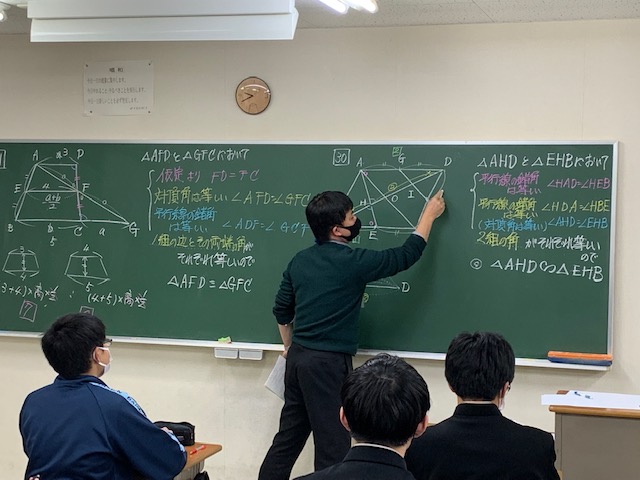 A 3 D
E F
a+b
2
B b C a G
5
△AFDと△GFCにおいて
仮定より FD=FC
対頂角は等しい ∠AFD=∠GFC
平行線の錯角
は等しい ∠ADF=∠GCF
1組の辺とその両端の角が
それぞれ等しいので
△AFD≡△GFC
4
5
(4+5)×高×1/2
30
A G D
H O I
E
D
△AHDと△EHBにおいて
平行線の錯角
は等しい ∠HAD=∠HEB
平行線の錯角
は等しい ∠HDA=∠HBE
(対頂角は等しい) ∠AHD=∠EHB
2組の角がそれぞれ等しい
ので
△AHD∽△EHB